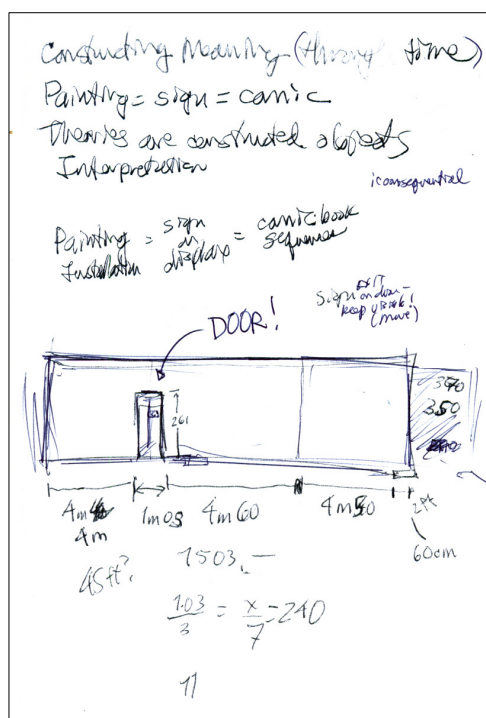 Constructing Meaning (through time)
Painting = sign = comic
Theories are constructed objects
Interpretation
iconsequential
Painting = sign = comic book
Installation display sequences
sign EXIT
on door
keep
(move)
DOOR!
261
390
350
4m 1m03 4m60 4m50 2ft
4m
60cm
45ft?
1503.—
1.03/3 = x/7 = 240
11